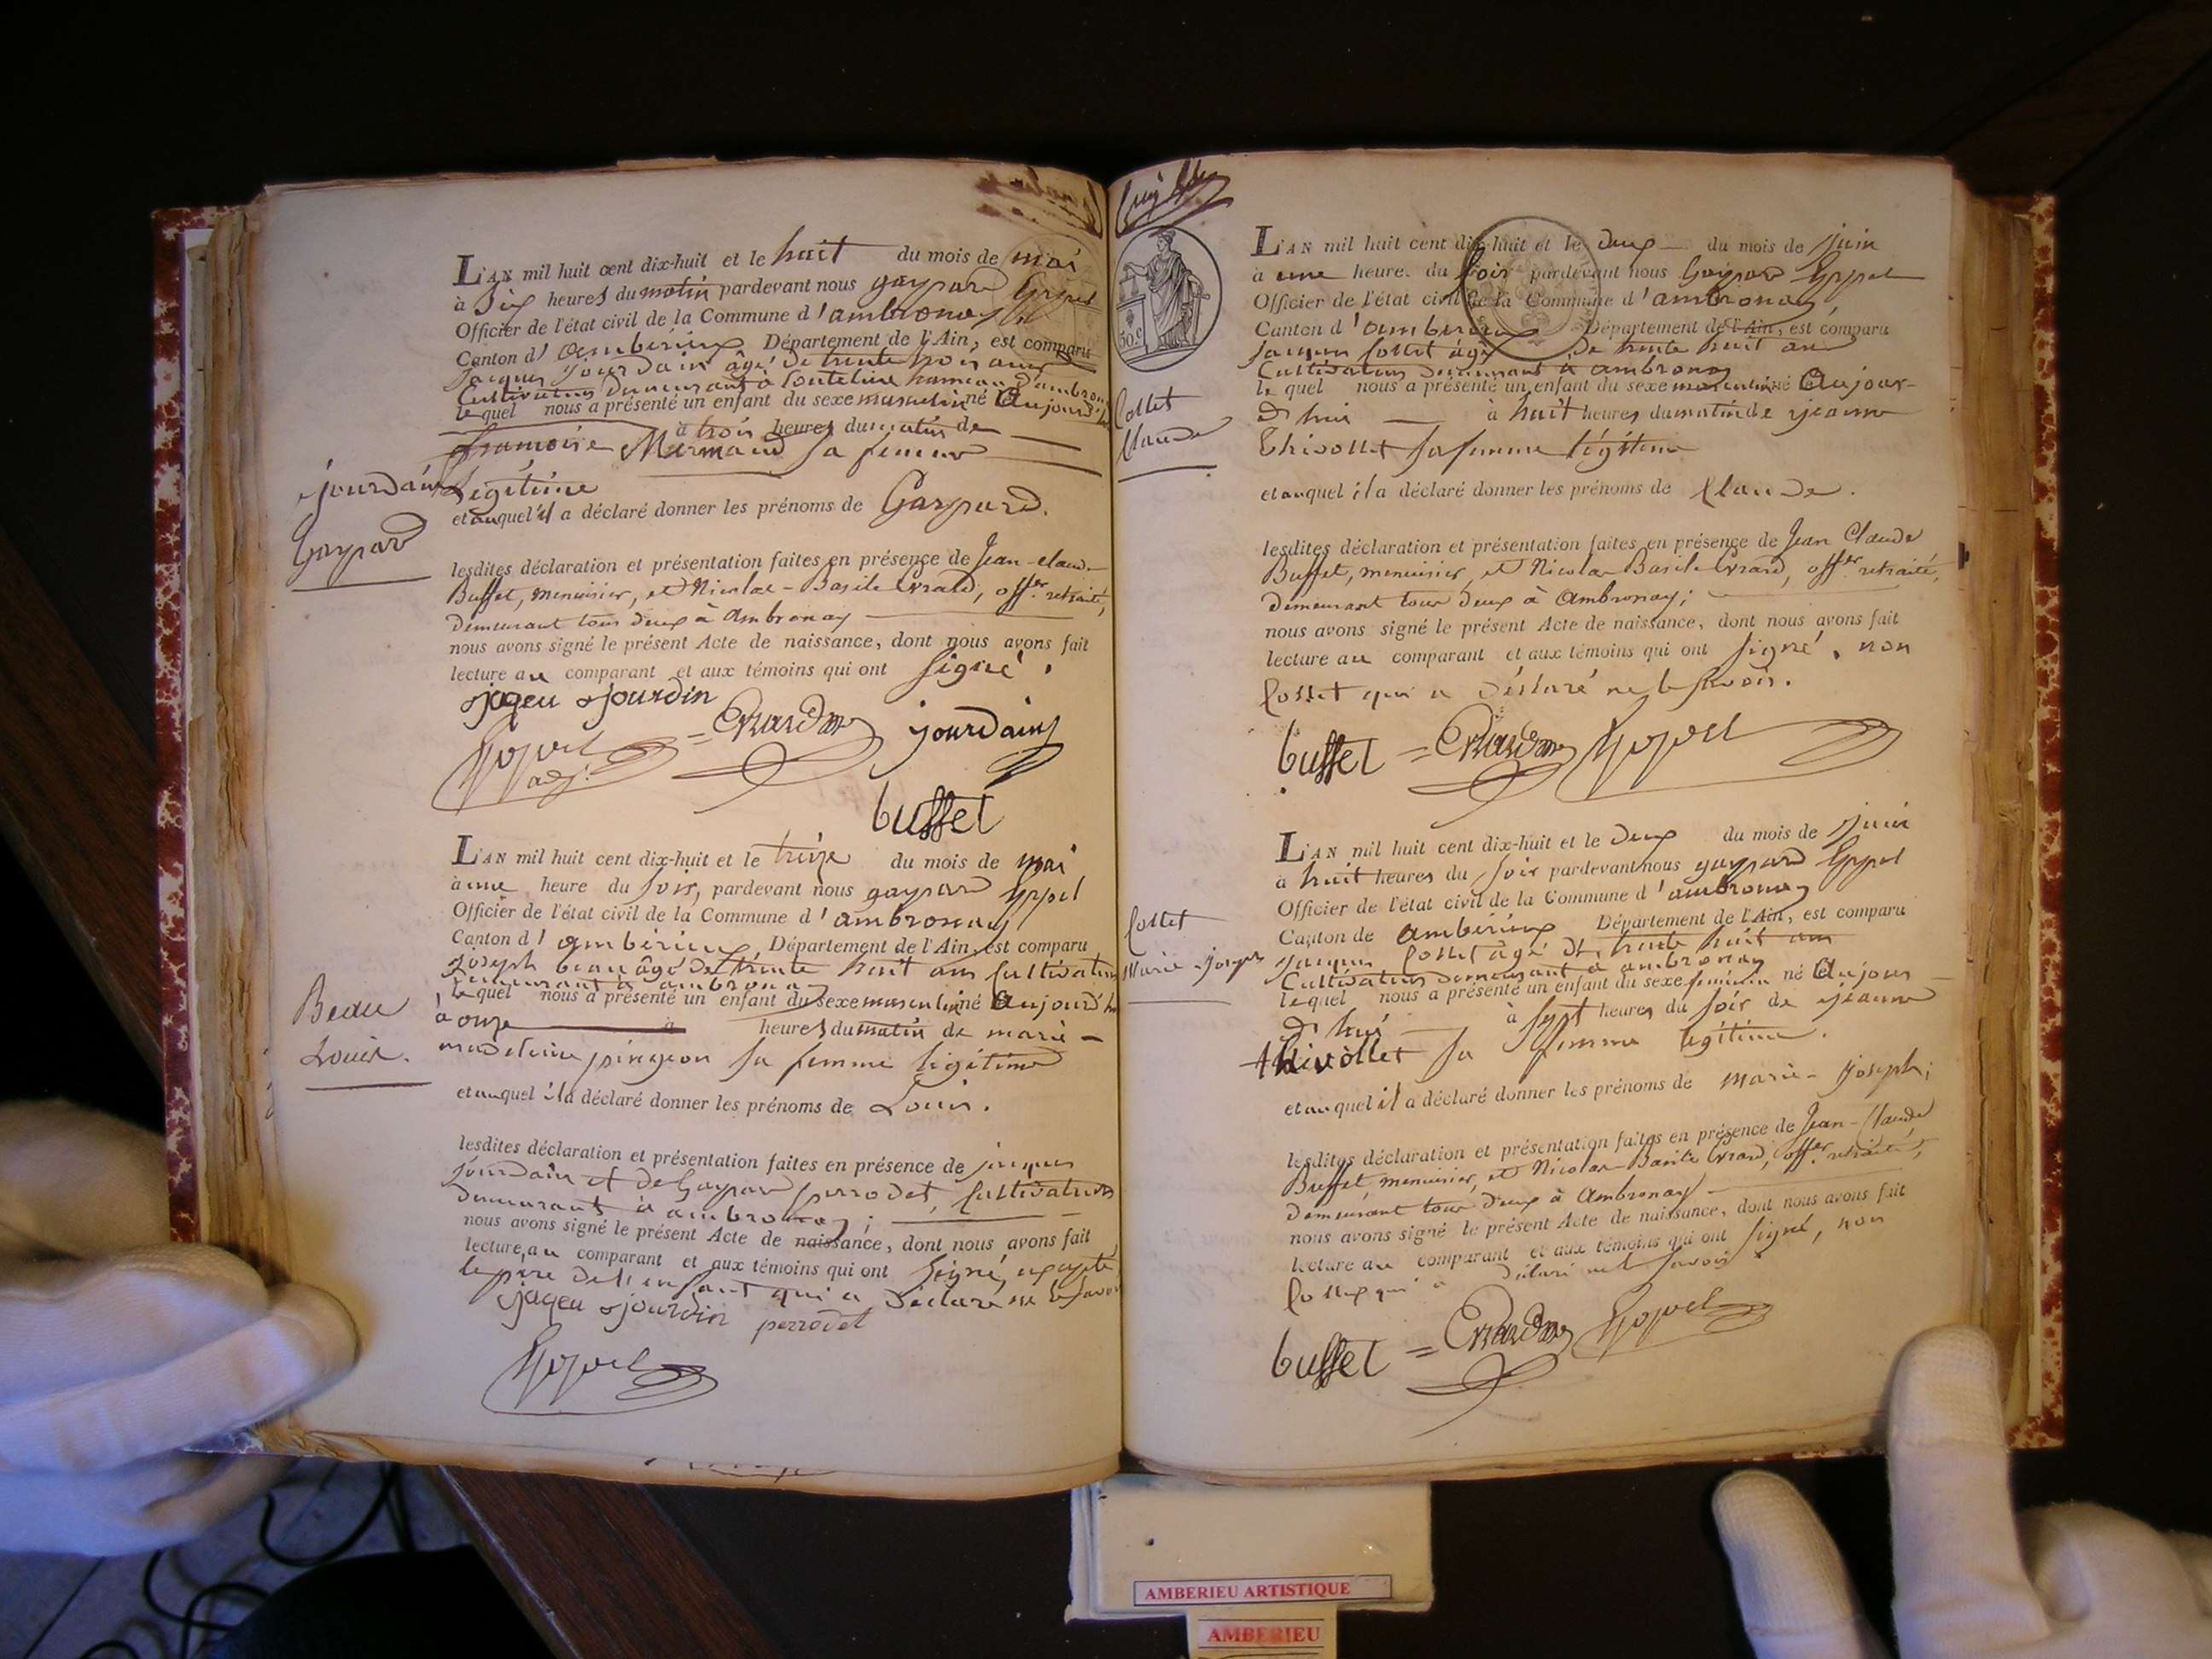 L'AN mil huit cent dix-huit et le huit du mois de mai
à six heures du matin pardevant nous gaspard Eppel
Officier de l'état civil de la Commune d'ambronay
Canton d'amberieux Département de l'Ain, est comparu
jacques jourdain âgé de trente trois ans
Cultivateur demeurant à hameau d'ambronay
lequel nous a présenté un enfant du sexe masculin né aujourd'hui
à trois heures du matin de
françoise Mermand sa femme
Légitime
et auquel il a déclaré donner les prénoms de Gaspard.
jourdain
Gaspard
lesdites déclaration et présentation faites en présence de Jean-claude
Buffet, menuisier, et Nicolas-Basile Evrard, offer retraité,
demeurant tous deux à Ambronay
nous avons signé le présent Acte de naissance, dont nous avons fait
lecture au comparant et aux témoins qui ont signé.
jaqeu jourdin
Eppel adj. = Evrard jourdain
buffet
L'AN mil huit cent dix-huit et le treize du mois de mai
à une heure du soir, pardevant nous gaspard Eppel
Officier de l'état civil de la Commune d'ambronay
Canton d'amberieux Département de l'Ain, est comparu
joseph beau âgé de trente huit ans Cultivateur
demeurant à ambronay
lequel nous a présenté un enfant du sexe masculin né aujourd'hui
à onze à heures du matin de marie-
madeleine pingeon sa femme légitime
Beau
Louis.
et auquel il a déclaré donner les prénoms de Louis.
lesdites déclaration et présentation faites en présence de jacques
jourdain et de Gaspard perrodet, Cultivateurs
demeurant à ambronay;
nous avons signé le présent Acte de naissance, dont nous avons fait
lecture, au comparant et aux témoins qui ont signé, excepté
le père de l'enfant qui a déclaré ne le savoir
jaqeu jourdin perrodet
Eppel
50 c
L'AN mil huit cent dix-huit et le deux du mois de juin
à une heure du soir pardevant nous Gaspard Eppel
Officier de l'état civil de la Commune d'ambronay
Canton d'amberieux Département de l'Ain, est comparu
jacques Collet âgé de trente huit ans
Cultivateur demeurant à ambronay
lequel nous a présenté un enfant du sexe masculin né aujour-
d'hui à huit heures du matin de jeanne
Thivollet sa femme légitime
Collet
Claude
et auquel il a déclaré donner les prénoms de Claude.
lesdites déclaration et présentation faites en présence de Jean Claude
Buffet, menuisier, et Nicolas Basile Evrard, offer retraité,
demeurant tous deux à Ambronay;
nous avons signé le présent Acte de naissance, dont nous avons fait
lecture au comparant et aux témoins qui ont signé, non
Collet qui a déclaré ne le savoir.
buffet = Evrard Eppel
L'AN mil huit cent dix-huit et le deux du mois de juin
à huit heures du soir pardevant nous gaspard Eppel
Officier de l'état civil de la Commune d'ambronay
Canton de amberieux Département de l'Ain, est comparu
jacques Collet âgé de trente huit ans
Cultivateur demeurant à ambronay
lequel nous a présenté un enfant du sexe feminin né aujour-
d'hui à sept heures du soir de jeanne
thivollet sa femme légitime.
Collet
Marie-Joseph
et auquel il a déclaré donner les prénoms de marie-joseph;
lesdites déclaration et présentation faites en présence de Jean-Claude
Buffet menuisier, et Nicolas-Basile Evrard, offer retraité,
demeurant tous deux à Ambronay
nous avons signé le présent Acte de naissance, dont nous avons fait
lecture au comparant et aux témoins qui ont signé, non
qui a déclaré ne le savoir
buffet = Evrard Eppel
AMBERIEU ARTISTIQUE
AMBERIEU